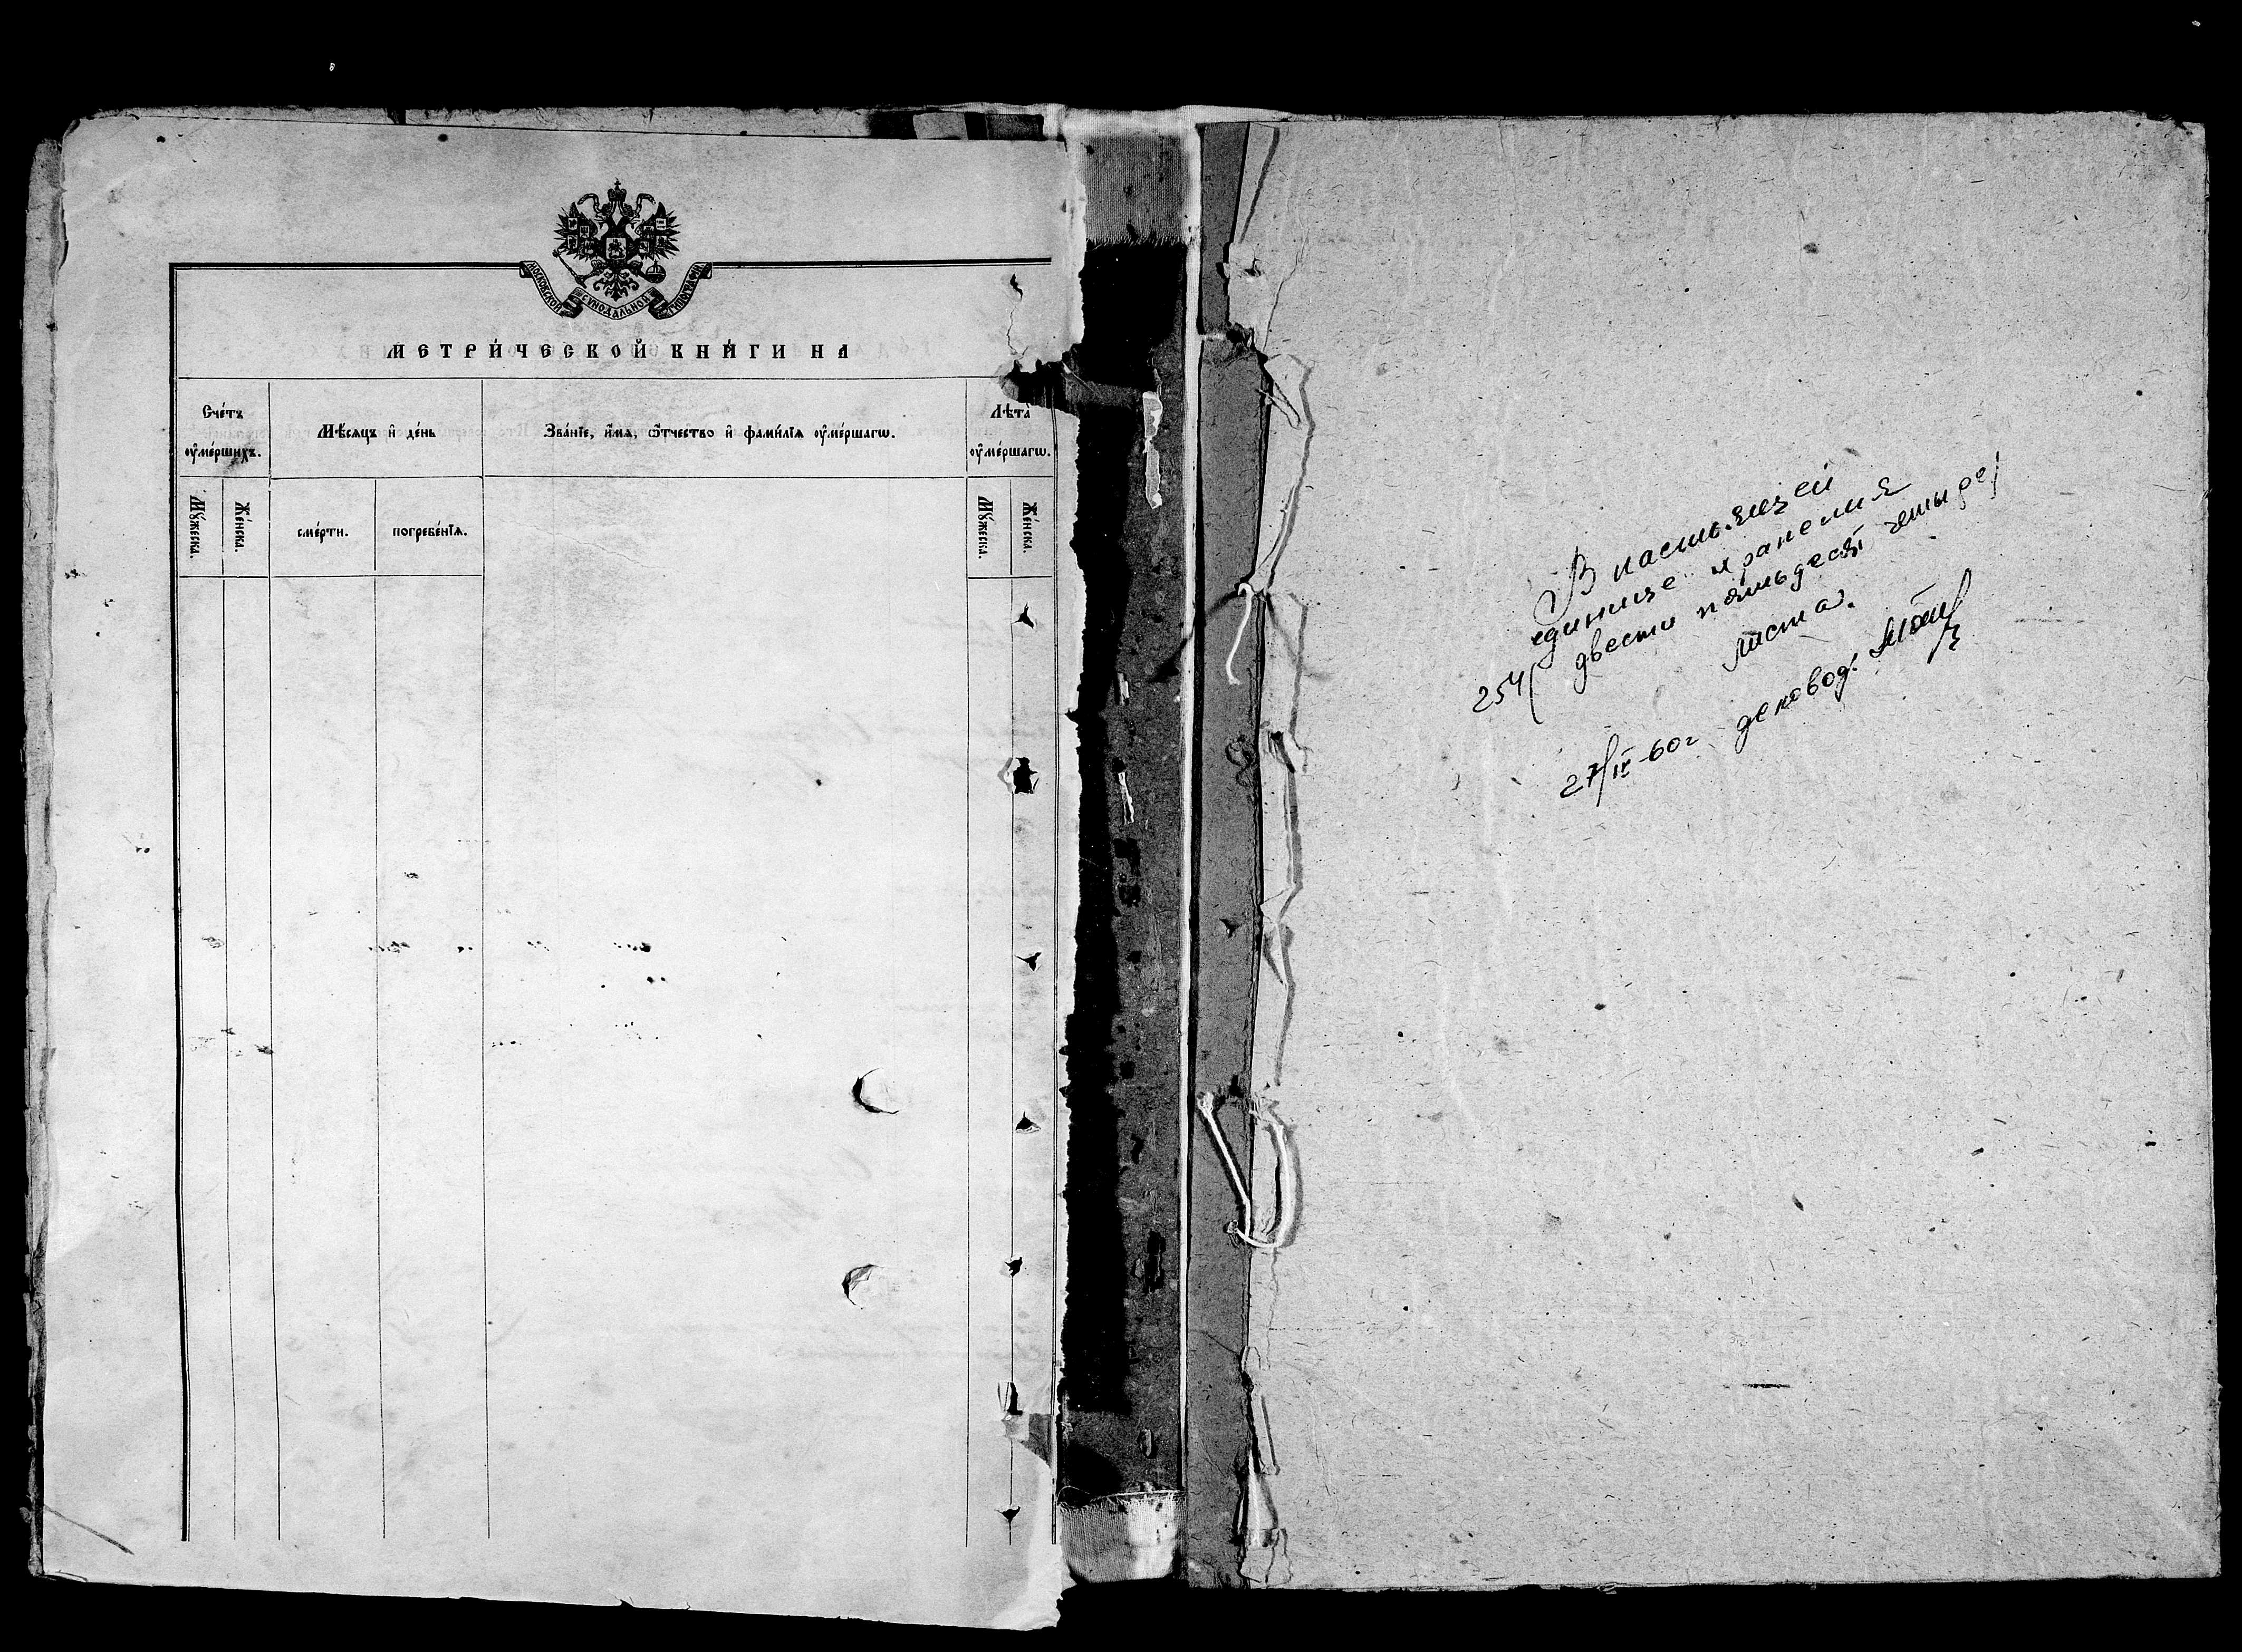 МОСКОВСКОЙ СѴНОДАЛЬНОЙ ТИПОГРАФІИ
МЕТРИ́ЧЕСКОЙ КНИ́ГИ НА
Сче́тъ оу҆ме́ршихъ.
Мѣ́сяцъ и҆ де́нь
Зва́нїе, и҆́мѧ, ѻ҆́тчество и҆ фами́лїѧ оу҆ме́ршагѡ.
Лѣта̀ оу҆ме́ршагѡ.
Мꙋ́жеска.
Же́нска.
сме́рти.
погребе́нїѧ.
Мꙋ́жеска.
Же́нска.
В настоящей
единице хранения
254( двести пятьдесят четыре)
листа.
27/IV-60г деловод.